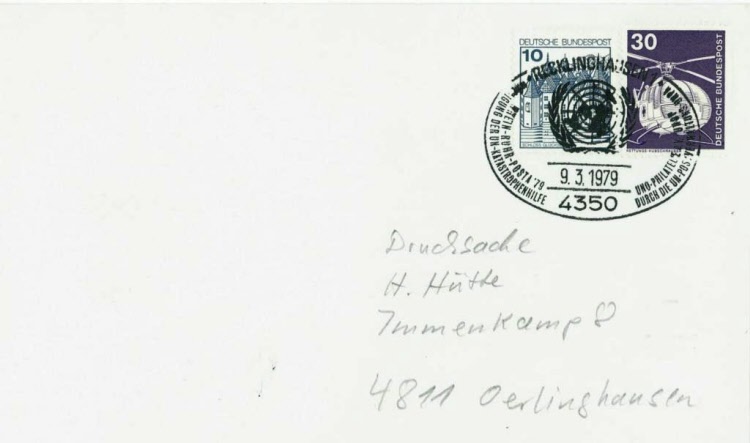 DEUTSCHE BUNDESPOST
10
30
DEUTSCHE BUNDESPOST
RECKLINGHAUSEN
RHEIN-RUHR-POSTA '79
DER UN-KATASTROPHENHILFE
UNO-PHILATELIE
DURCH DIE UN-POST
9.3.1979
4350
Drucksache
H. Hütte
Immenkamp 8
4811 Oerlinghausen